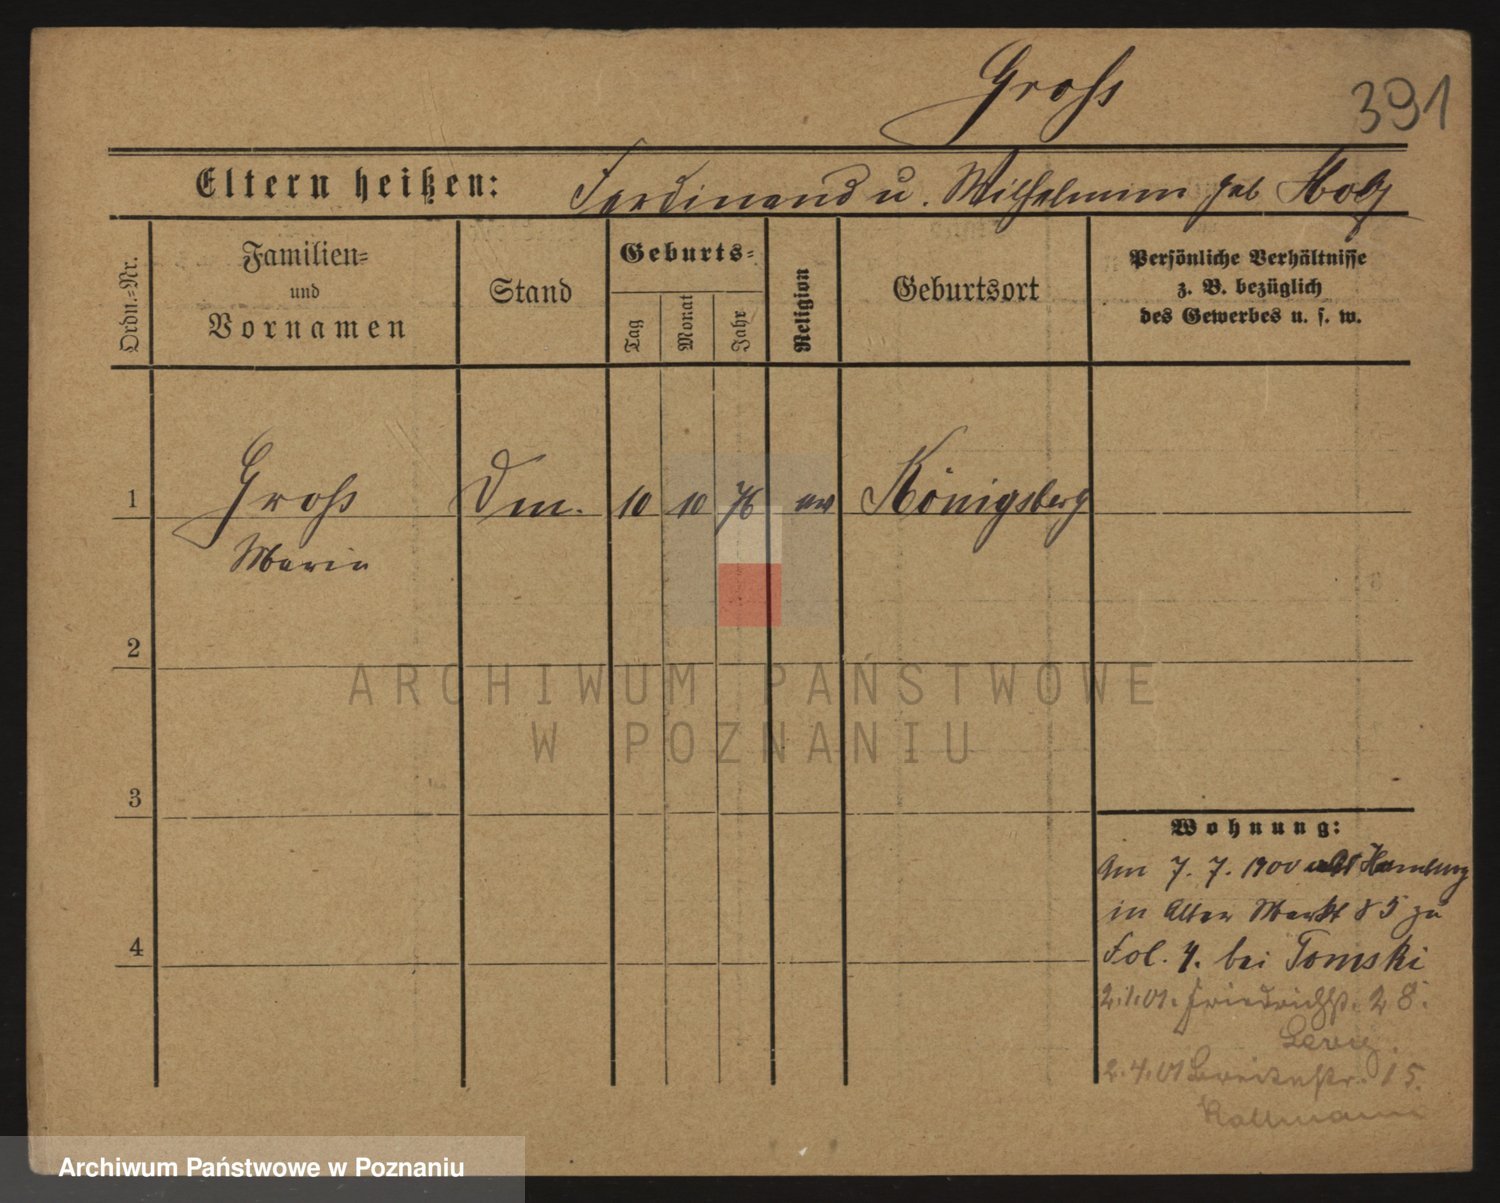 Groß
391
Eltern heißen: Ferdinand u. Wilhelmine geb Holz
Ordn.=Nr.
Familien=
und
Vornamen
Stand
Geburts=
Tag
Monat
Jahr
Religion
Geburtsort
Persönliche Verhältnisse
z. B. bezüglich
des Gewerbes u. s. w.
1 Groß Dm. 10 10 76 ev Königsberg
Marie
2
ARCHIWUM PAŃSTWOWE
W POZNANIU
3
Wohnung:
Am 7. 7. 1900 Hamburg
in Alter Markt 85 zu
4
Fol. 4. bei Tomski
2.1.01. Friedrichstr. 28.
2.4.01 Breitestr. 15.
Archiwum Państwowe w Poznaniu